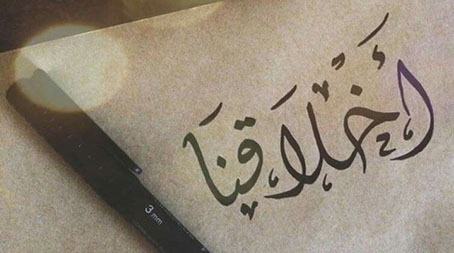 أَخْلَاقنَا
3 mm